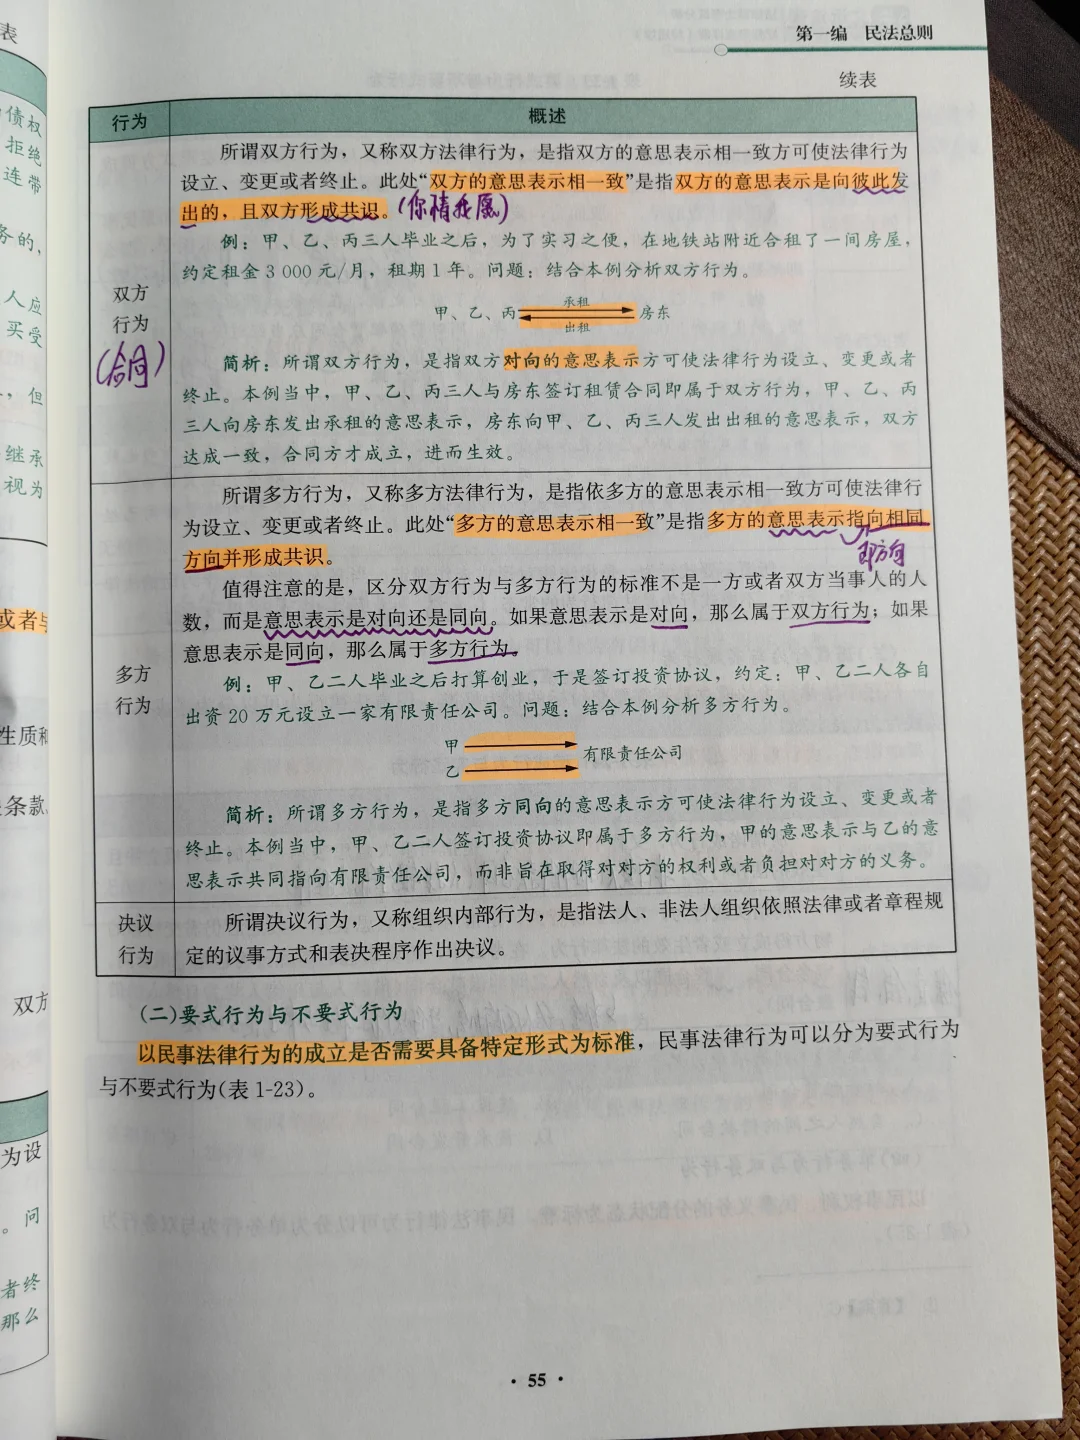 第一编　民法总则
续表
行为
概述
所谓双方行为，又称双方法律行为，是指双方的意思表示相一致方可使法律行为
设立、变更或者终止。此处“双方的意思表示相一致”是指双方的意思表示是向彼此发
出的，且双方形成共识。(你情我愿)
例：甲、乙、丙三人毕业之后，为了实习之便，在地铁站附近合租了一间房屋，
约定租金 3 000 元/月，租期 1 年。问题：结合本例分析双方行为。
承租
甲、乙、丙
房东
出租
双方
行为
(合同)
简析：所谓双方行为，是指双方对向的意思表示方可使法律行为设立、变更或者
终止。本例当中，甲、乙、丙三人与房东签订租赁合同即属于双方行为，甲、乙、丙
三人向房东发出承租的意思表示，房东向甲、乙、丙三人发出出租的意思表示，双方
达成一致，合同方才成立，进而生效。
所谓多方行为，又称多方法律行为，是指依多方的意思表示相一致方可使法律行
为设立、变更或者终止。此处“多方的意思表示相一致”是指多方的意思表示指向相同
方向并形成共识。
即方向
值得注意的是，区分双方行为与多方行为的标准不是一方或者双方当事人的人
数，而是意思表示是对向还是同向。如果意思表示是对向，那么属于双方行为；如果
意思表示是同向，那么属于多方行为。
多方
行为
例：甲、乙二人毕业之后打算创业，于是签订投资协议，约定：甲、乙二人各自
出资 20 万元设立一家有限责任公司。问题：结合本例分析多方行为。
甲
乙
有限责任公司
简析：所谓多方行为，是指多方同向的意思表示方可使法律行为设立、变更或者
终止。本例当中，甲、乙二人签订投资协议即属于多方行为，甲的意思表示与乙的意
思表示共同指向有限责任公司，而非旨在取得对对方的权利或者负担对对方的义务。
决议
行为
所谓决议行为，又称组织内部行为，是指法人、非法人组织依照法律或者章程规
定的议事方式和表决程序作出决议。
(二)要式行为与不要式行为
以民事法律行为的成立是否需要具备特定形式为标准，民事法律行为可以分为要式行为
与不要式行为(表 1-23)。
· 55 ·
表
债权
拒绝
连带
务的，
人应
买受
，但
继承
视为
或者与
生质和
条款
双方
为设
。问
者终
那么